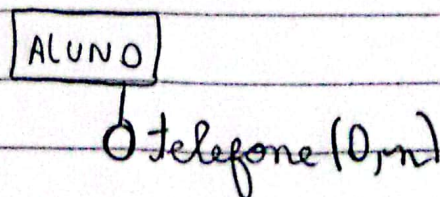 ALUNO
telefone (0,n)